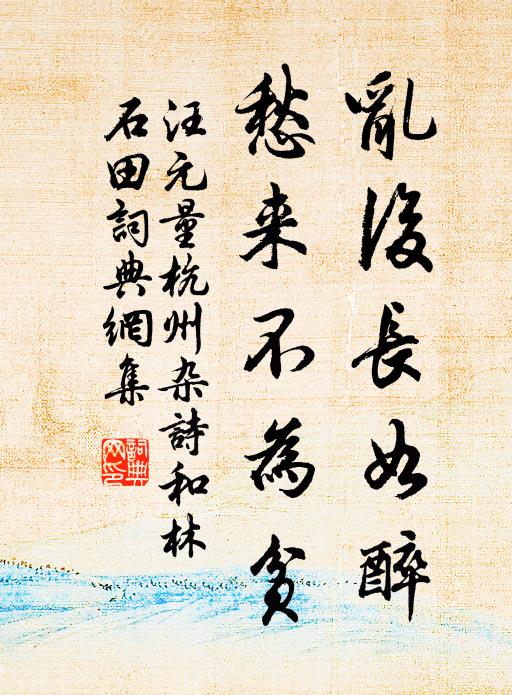 亂後長如醉
愁来不為貧
汪元量杭州杂詩和林
石田詞典網集
詞典
网印